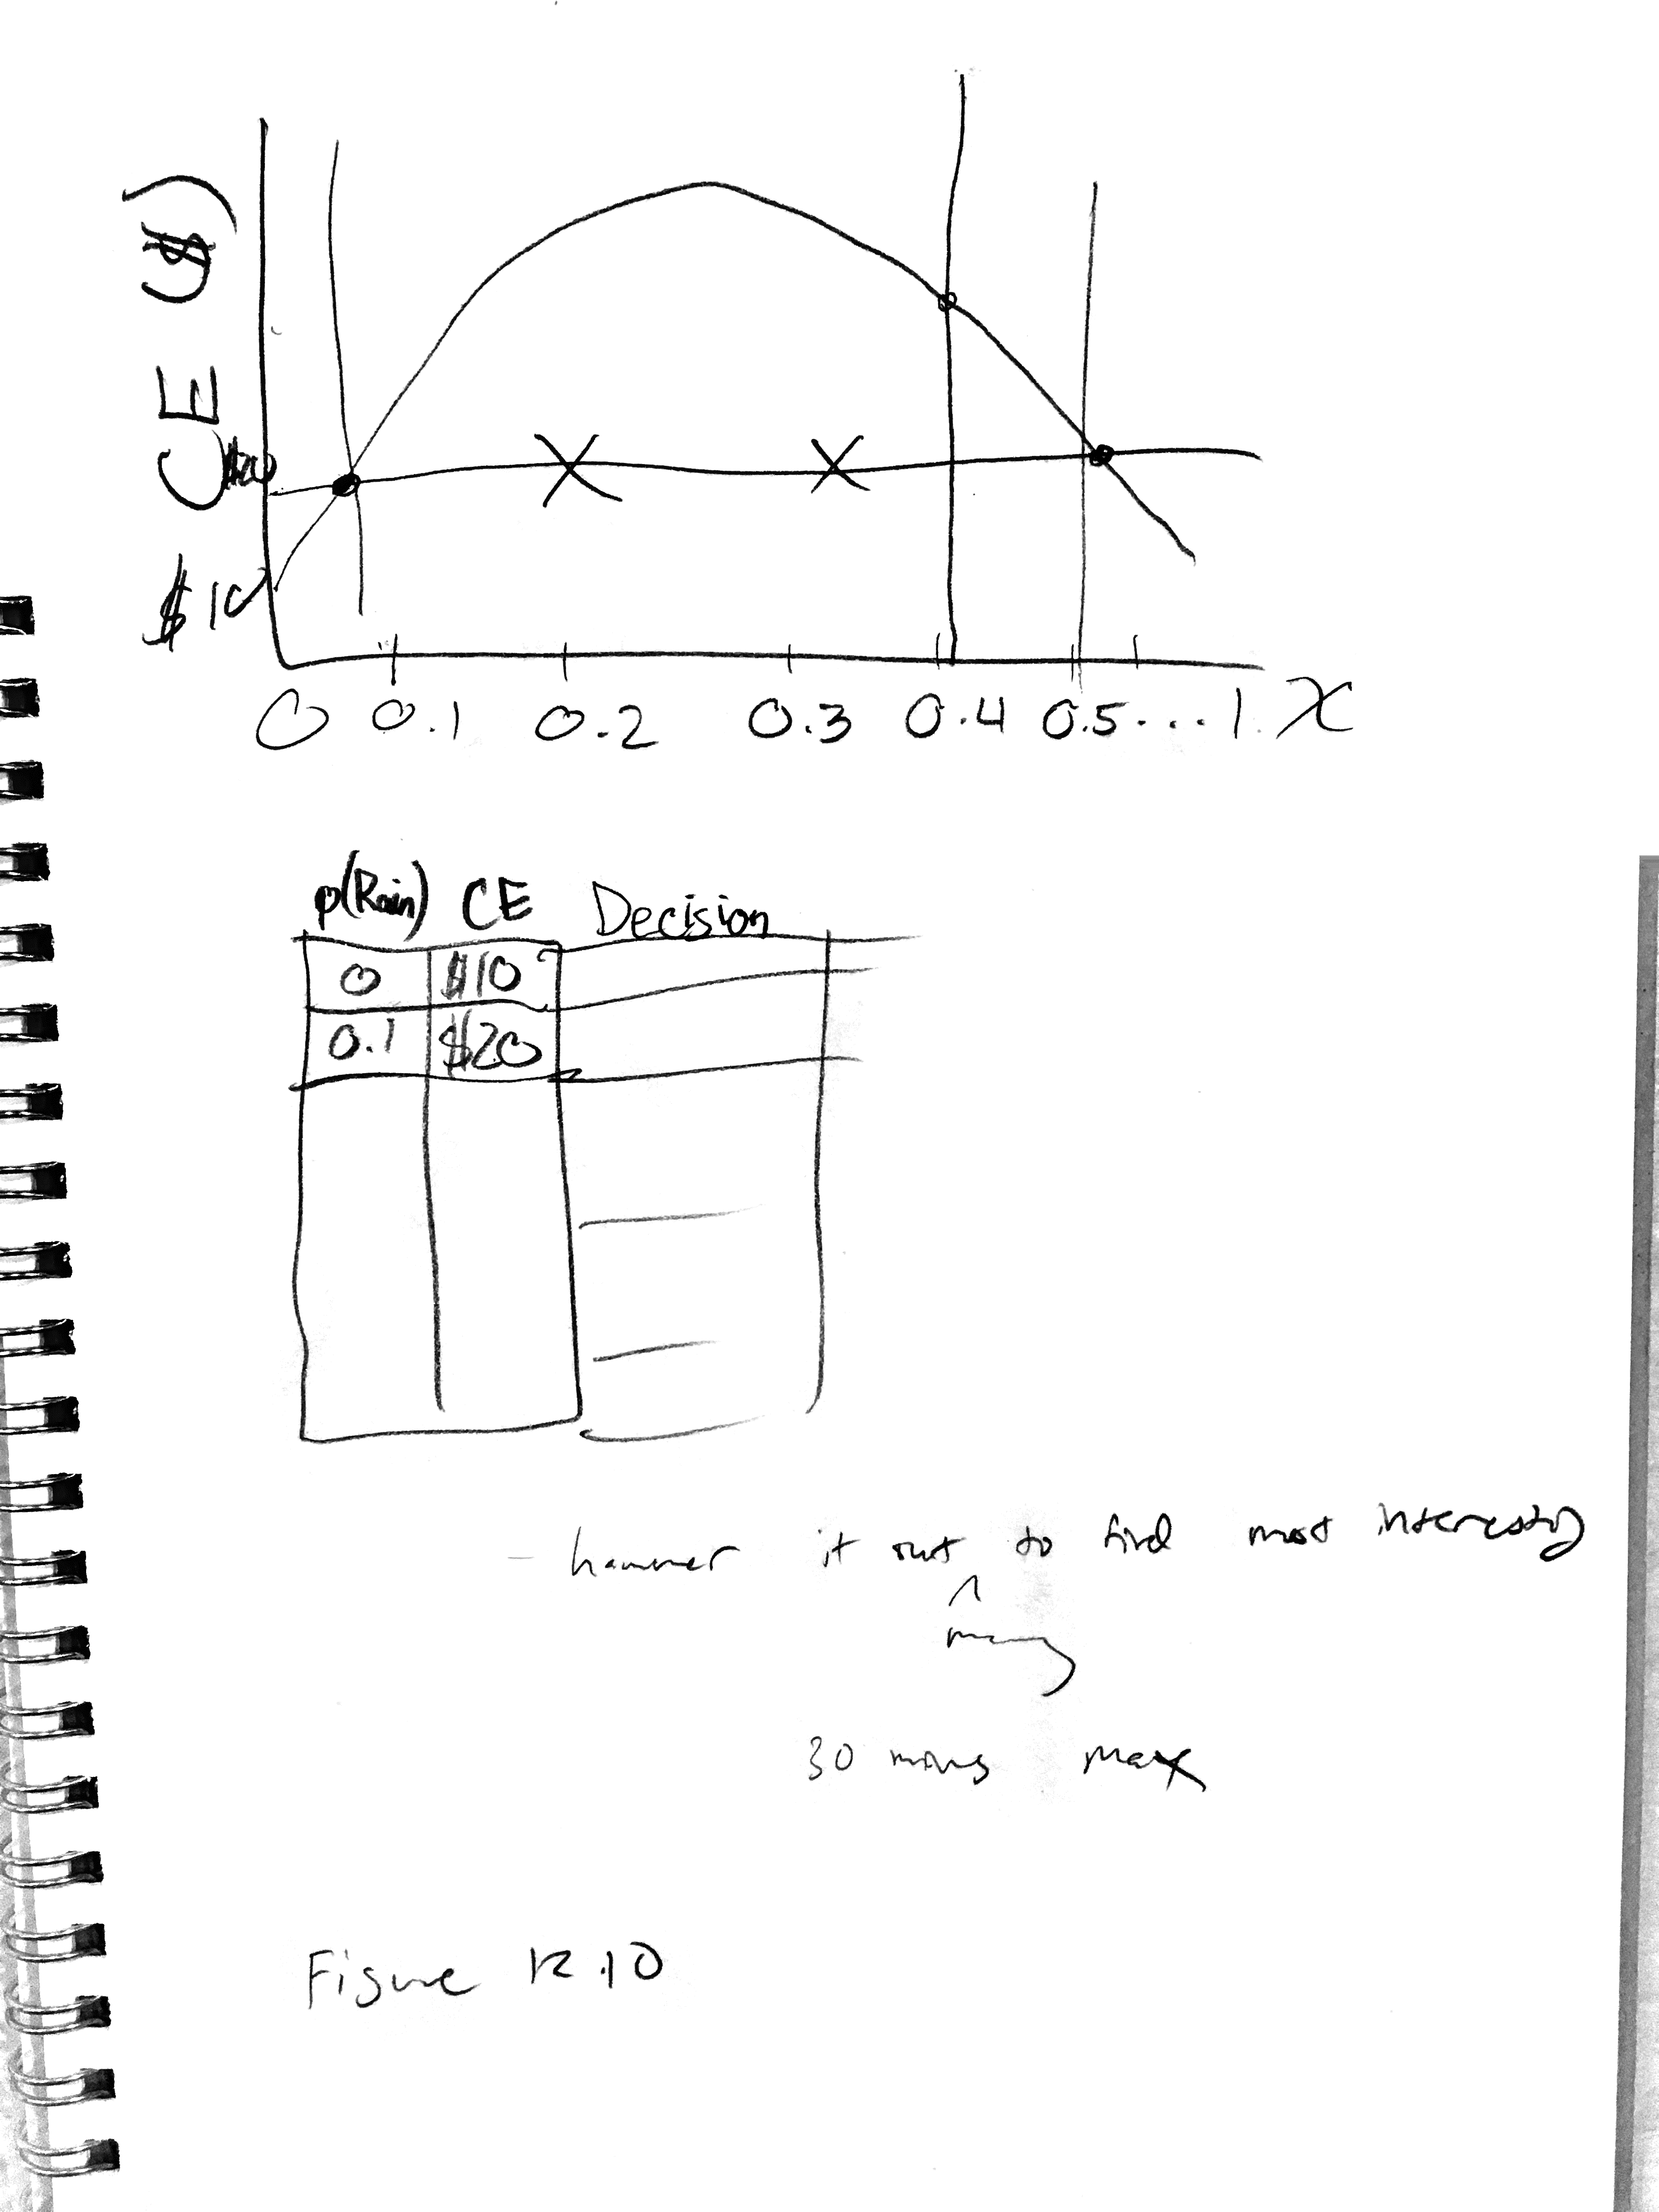 CE ($)
$20
$10
0 0.1 0.2 0.3 0.4 0.5...1. x
p(Rain) CE Decision
0 $10
0.1 $20
- hammer it out to find most interesting
^
30 mins max
Figure 12.10